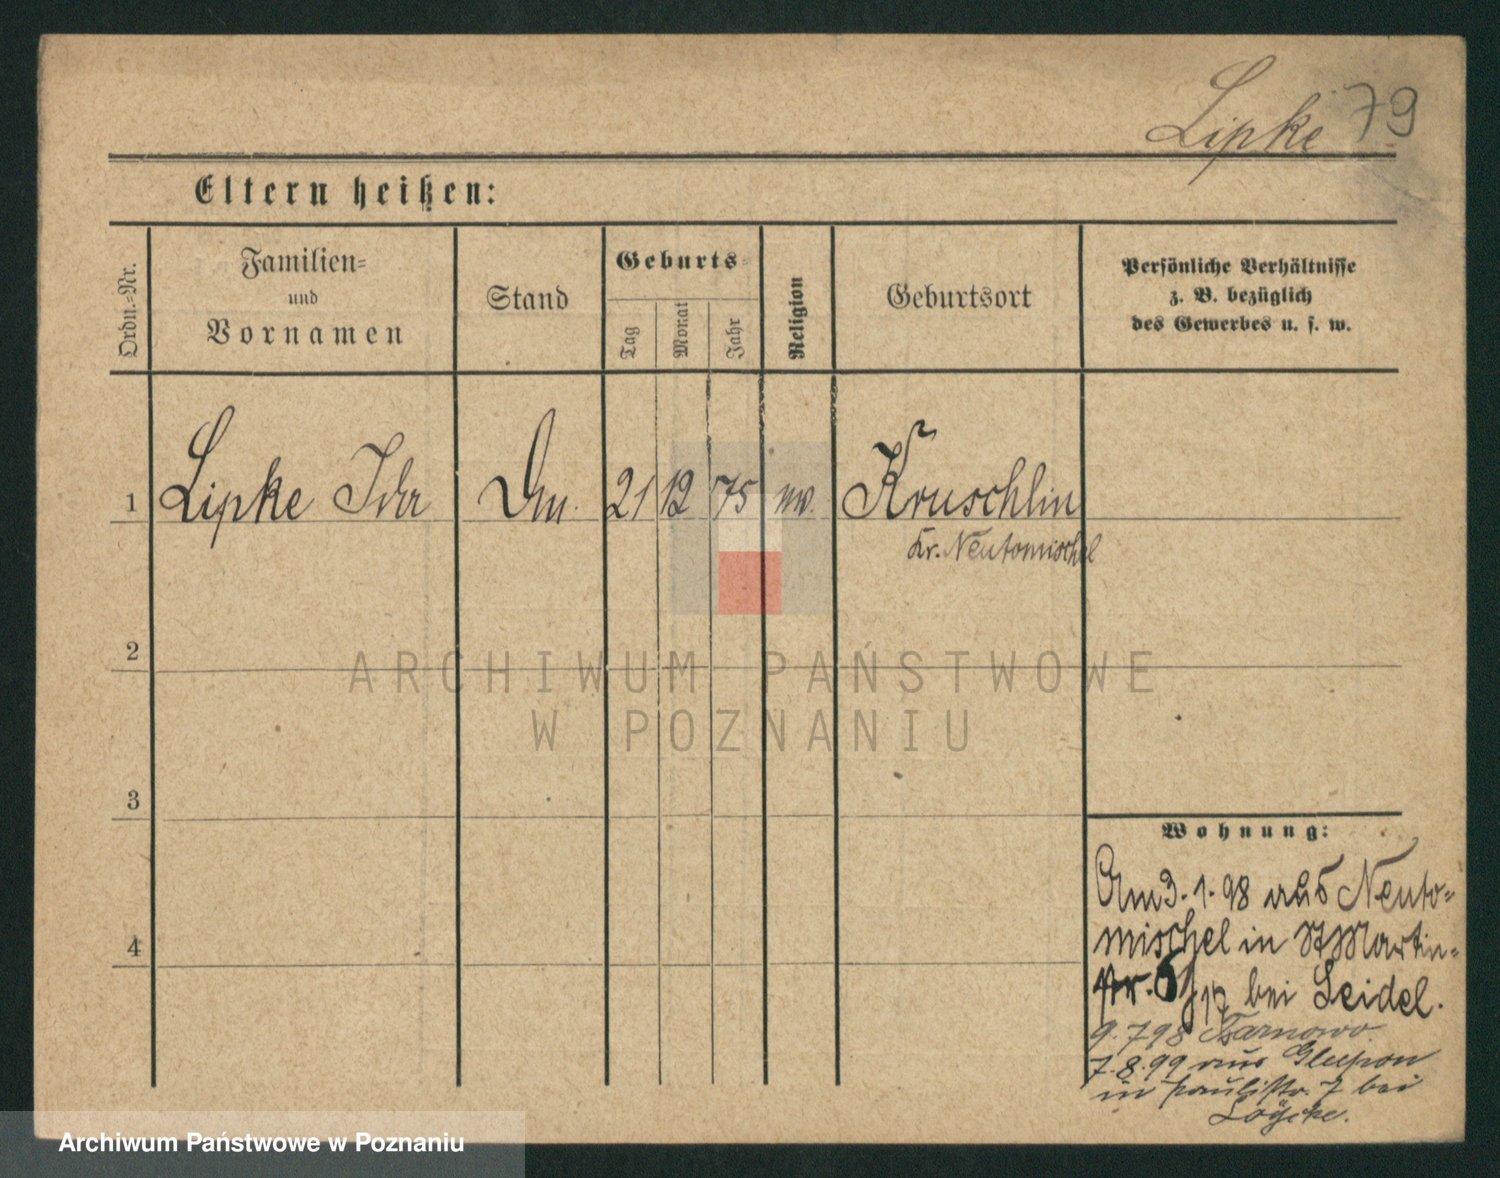 Lipke 79
Eltern heißen:
Ordn.-Nr.
Familien-
und
Vornamen
Stand
Geburts-
Tag
Monat
Jahr
Religion
Geburtsort
Persönliche Verhältnisse
z. B. bezüglich
des Gewerbes u. s. w.
1 Lipke Ida 21 12 75 Kruschlin
Kr. Neutomischel
2
3
4
ARCHIWUM PAŃSTWOWE
W POZNANIU
Wohnung:
Am 3.1.98 aus Neuto-
mischel in St Martin-
str. bei Seidel.
9.7 98 Tarnowo
7.8.99 aus
in Paulistr. 7 bei
Archiwum Państwowe w Poznaniu